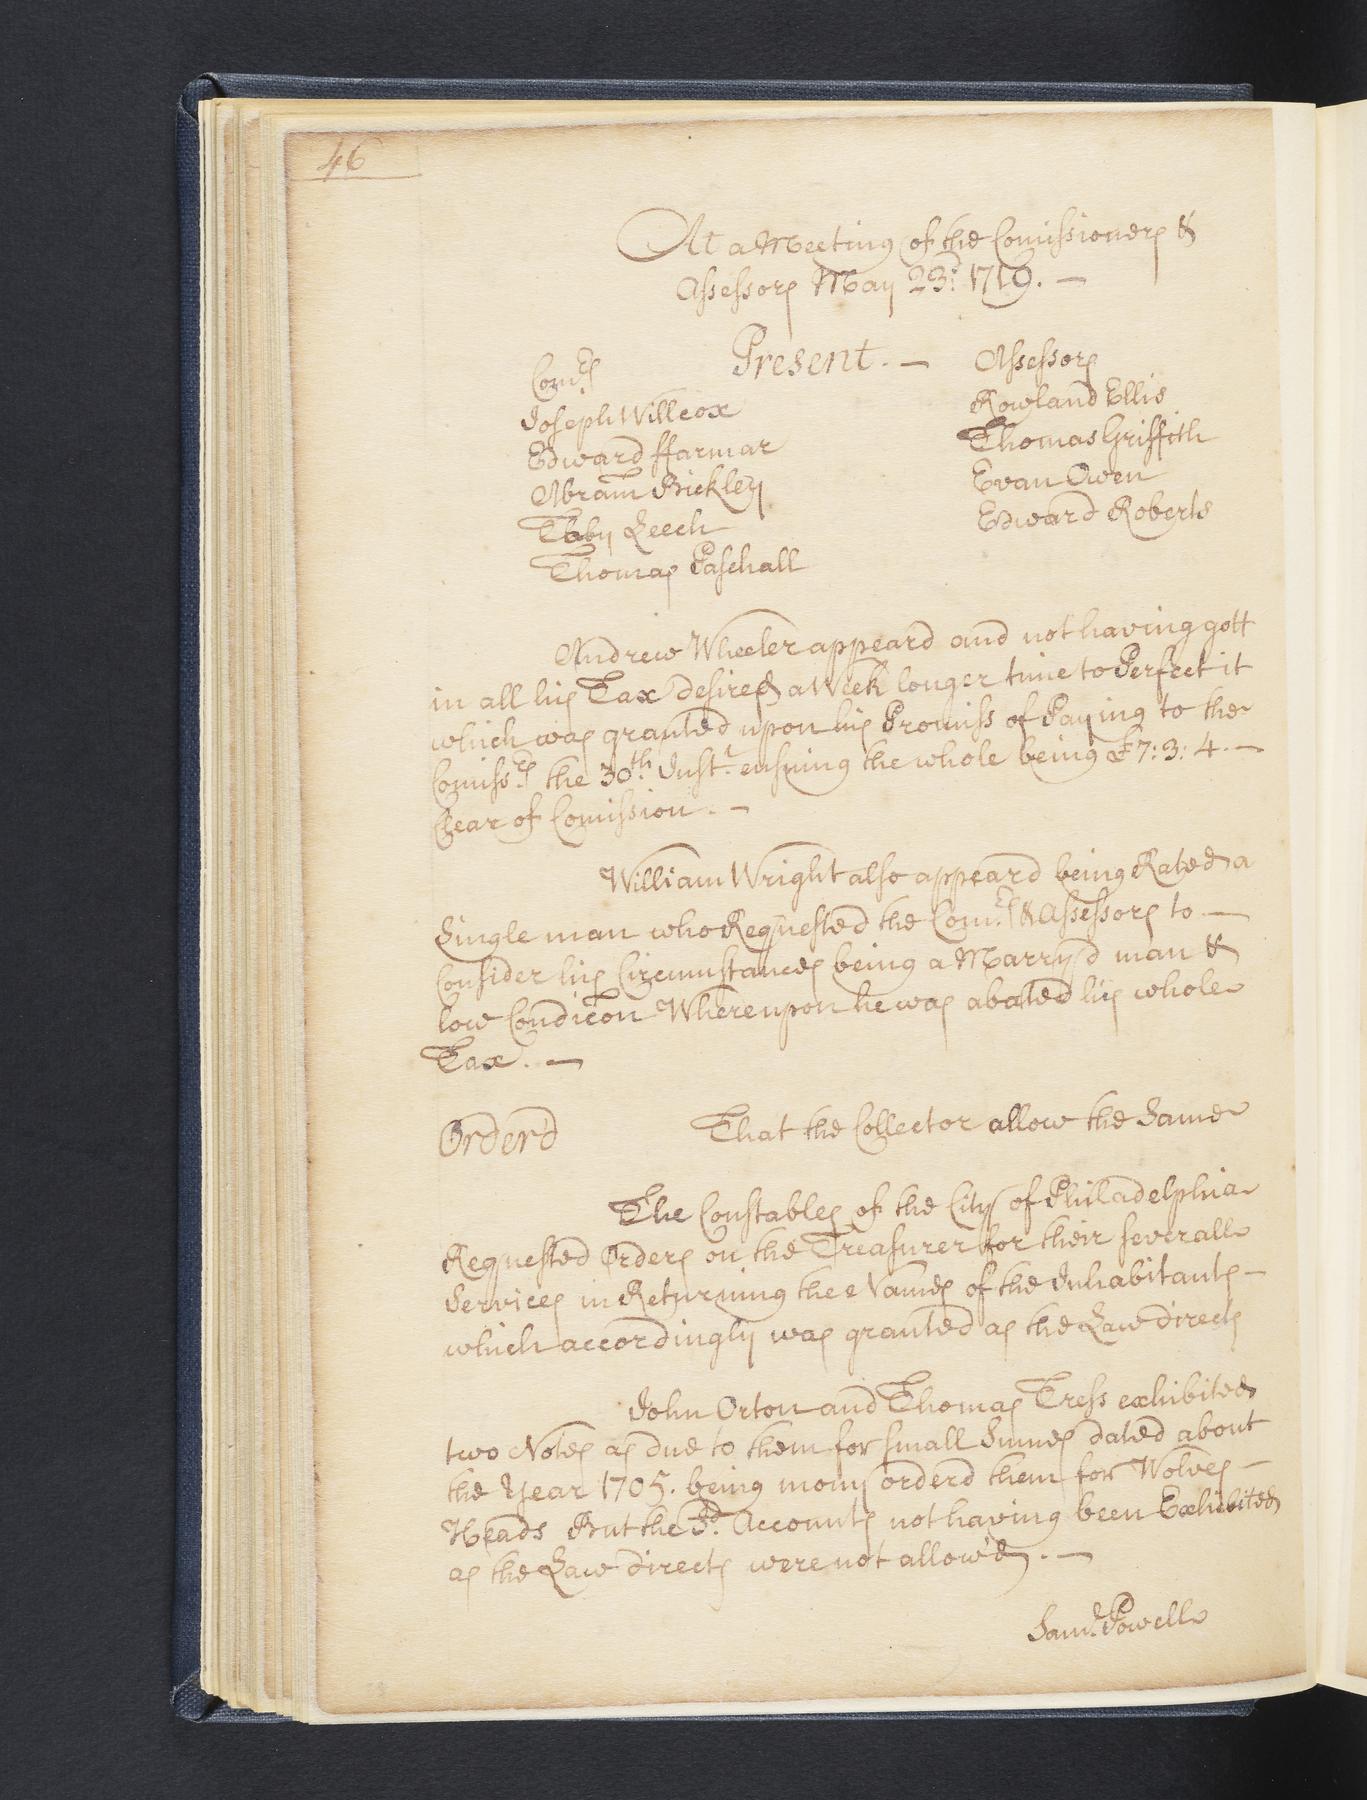 46
At a Meeting of the Comissioners &
Assessors May 23d: 1719. —
Present. —
Comrs
Joseph Willcox
Edward ffarmar
Abram Bickley
Toby Leech
Thomas Paschall
Assessors
Rowland Ellis
Thomas Griffith
Evan Owen
Edward Roberts
Andrew Wheeler appeard and not having gott
in all his Tax desired a Week longer time to Perfect it
which was granted upon his Promiss of Paying to the
Comissrs the 30th Instt ensuing the whole being £7:3:4. —
Clear of Comission. —
William Wright also appeard being Rated a
Single man who Requested the Comrs & Assessors to —
Consider his Circumstances being a Marryd man &
low Condicon Whereupon he was abated his whole
Tax. —
Orderd That the Collector allow the Same
The Constables of the City of Philadelphia
Requested Orders on the Treasurer for their severall
Services in Returning the Names of the Inhabitants —
which accordingly was granted as the Law directs
John Orton and Thomas Tress exhibited
two Notes as due to them for small Sumes dated about
the Year 1705. being mony orderd them for Wolves —
Heads But the Sd. Accounts not having been Exhibited
as the Law directs were not allow'd. —
Saml. Powell